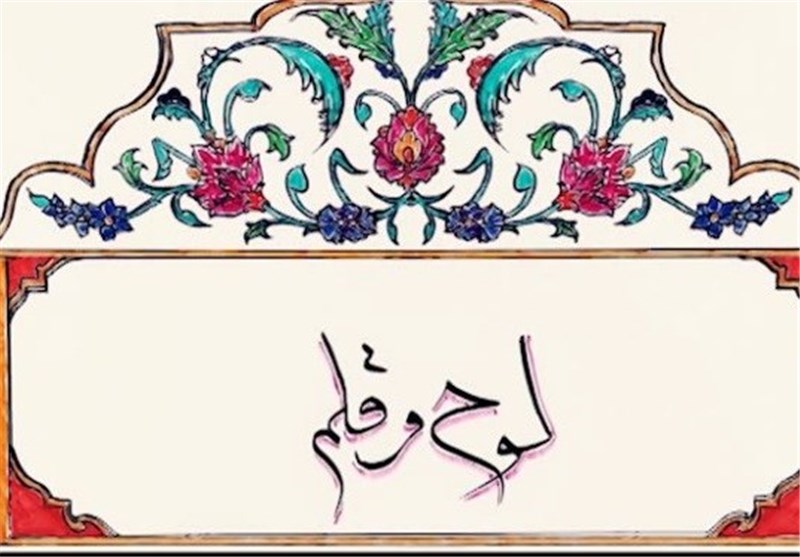 لوح و قلم